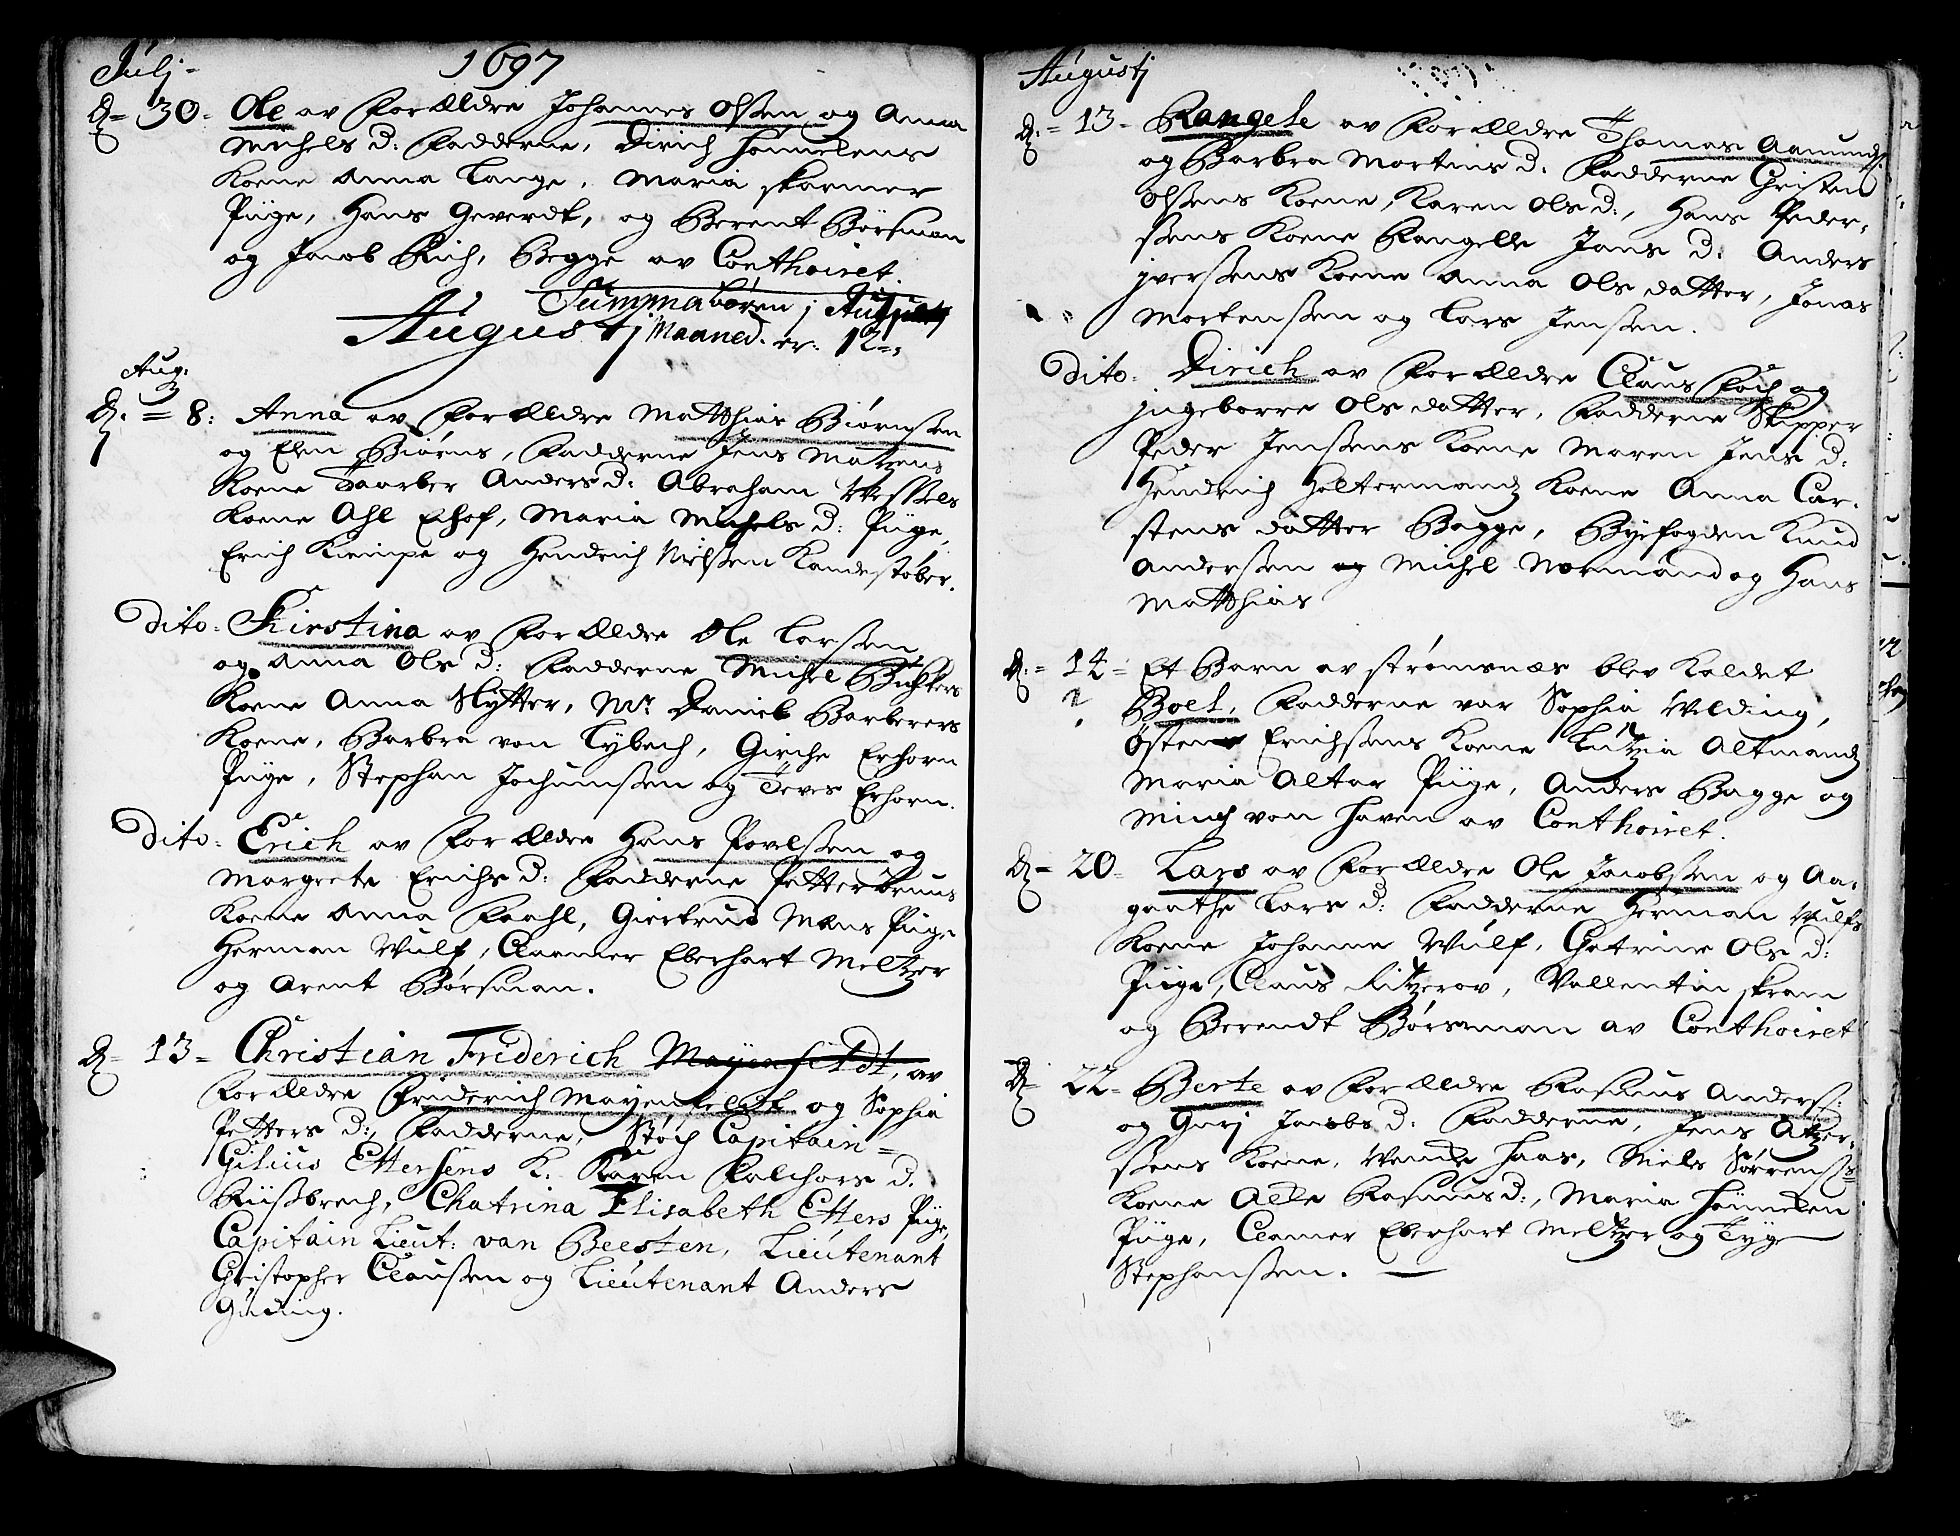 Julj
1697
D. = 30. Ole av Forældre Johannes Olssen og Anna
Michels D: Fadderne, Dirich
Koene Anna Lange, Maria skarmer
Piige, Hans Geverdt, og Berent Börsman
og Jacob Rich, Begge av Conthoiret.
Summa börn j
Augustj Maaned. er. 12
Aug:
D. = 8: Anna av Forældre Matthias Biörnssen
og Elen Biörns, Fadderne Jens Matzens
Koene Taarber Anders D: Abraham Wessels
Koene Ahl Elhof, Maria Michels D: Piige,
Erich Kempe og Hendrich Nielssen Kandestöber.
Dito. Kirstina av Forældre Ole Larssen
og Anna Ols D: Fadderne Michel
Koene Anna Slytter, Mr. Daniel Barberers
Koene, Barbra von Lybech, Girche Erhorn
Piige, Stephan Jochumssen og Teves Erhorn.
Dito. Erich av Forældre Hans Povelssen og
Margrete Erichs D: Fadderne Petter Bruus
Koene Anna Faahl, Giertrud Mæns Piige
Herman Wulf, Claamer Eberhart Meltzer
og Arent Börsman.
D = 13 = Christian Friderich Mayenfeldt, av
Forældre Friderich Mayenfeldt og Sophia
Petters D:, Fadderne, Capitain=
Gilius Ettersens K: Karen Falchors D.
Riissbrech, Chatrina Elisabeth Etters Piige,
Capitain Lieut: van Beesten, Lieutenant
Christopher Claussen og Lieutenant Anders
Güding.
Augustj
D. = 13 - Rangele av Forældre Thomas Aamunds:
og Barbra Martins D: Fadderne Christen
Olssens Koene, Karen Ols D:, Hans Peder-
ssens Koene Rangelle Jans D: Anders
jverssens Koene Anna Ols datter, Jonas
Mortenssen og Lars Jenssen.
Dito. Dirich av Forældre Claus Foch og
jngeborre Ols datter, Fadderne Skipper
Peder Jenssens Koene Maren Jens D:
Hendrich Holtermandz Koene Anna Car-
stens datter Bagge, Byefogden Knud
Anderssen og Michel Normand og Hans
Matthias
D. = 14 = Et Barn av strömsnæs blev Kaldet
? Boel, Fadderne var Sophia Welding,
Östen Erichssens Koene Lutzia Altmandz
Maria Altar Piige, Anders Bagge og
Minch von Haven av Conthoiret.
D = 20 = Lars av Forældre Ole Jacobssen og Aa-
gaathe Lars D: Fadderne Herman Wulfs
Koene Johanne Wulf, Chatrine Ols D:
Piige, Claus Ritzerov, Vallentin skram
og Berendt Börsman av Conthoiret
D = 22 = Berte av Forældre Rasmus Anderss:
og Gurj Jacobs D: Fadderne, Jens Atzer-
ssens Koene, Wende Haas, Niels Sörrenss
Koene Alle Rasmus D:, Maria
Piige, Clamer Eberhart Meltzer og Tyge
Stephanssen.